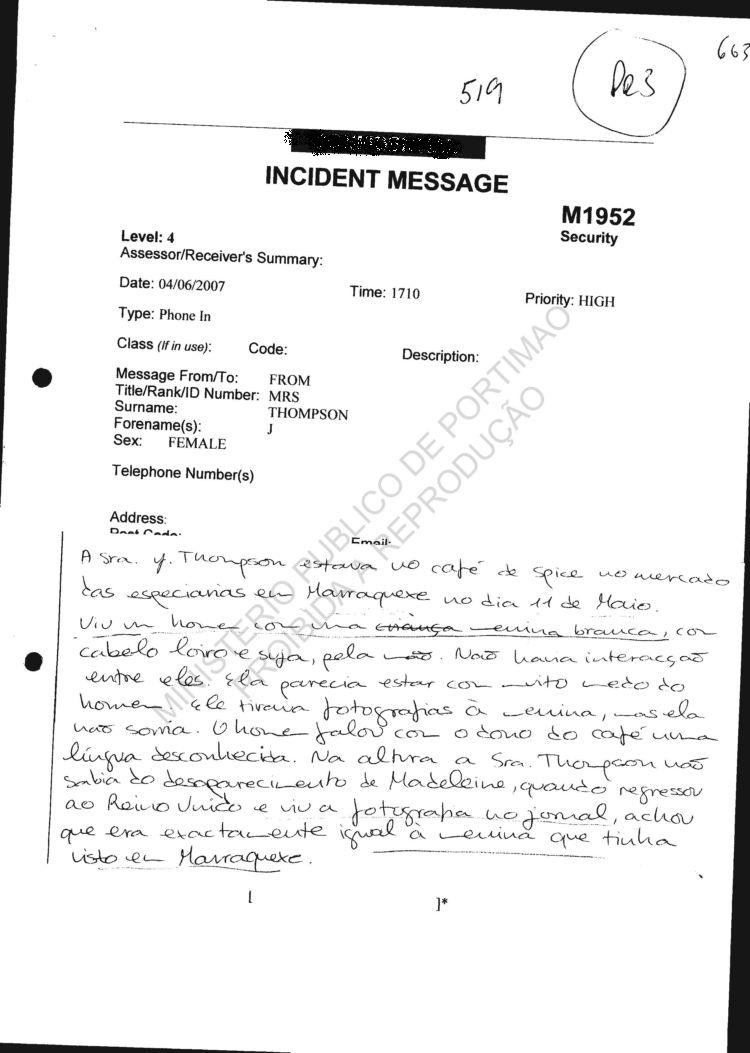 663
519
Pe3
INCIDENT MESSAGE
M1952
Security
Level: 4
Assessor/Receiver's Summary:
Date: 04/06/2007 Time: 1710 Priority: HIGH
Type: Phone In
Class (If in use): Code: Description:
Message From/To: FROM
Title/Rank/ID Number: MRS
Surname: THOMPSON
Forename(s): J
Sex: FEMALE
Telephone Number(s)
Address:
Post Code: Email:
A Sra. J. Thompson estava no café de spice no mercado
das especiarias em Marraquexe no dia 11 de Maio.
Viu um homem com uma criança menina branca, com
cabelo loiro e suja, pela mão. Não havia interacção
entre eles. Ela parecia estar com muito medo do
homem. Ele tirava fotografias à menina, mas ela
não sorria. O homem falou com o dono do café numa
língua desconhecida. Na altura a Sra. Thompson não
sabia do desaparecimento de Madeleine, quando regressou
ao Reino Unido e viu a fotografia no jornal, achou
que era exactamente igual à menina que tinha
visto em Marraquexe.
[ ]*
MINISTERIO PUBLICO DE PORTIMAO
PROIBIDA A REPRODUÇÃO